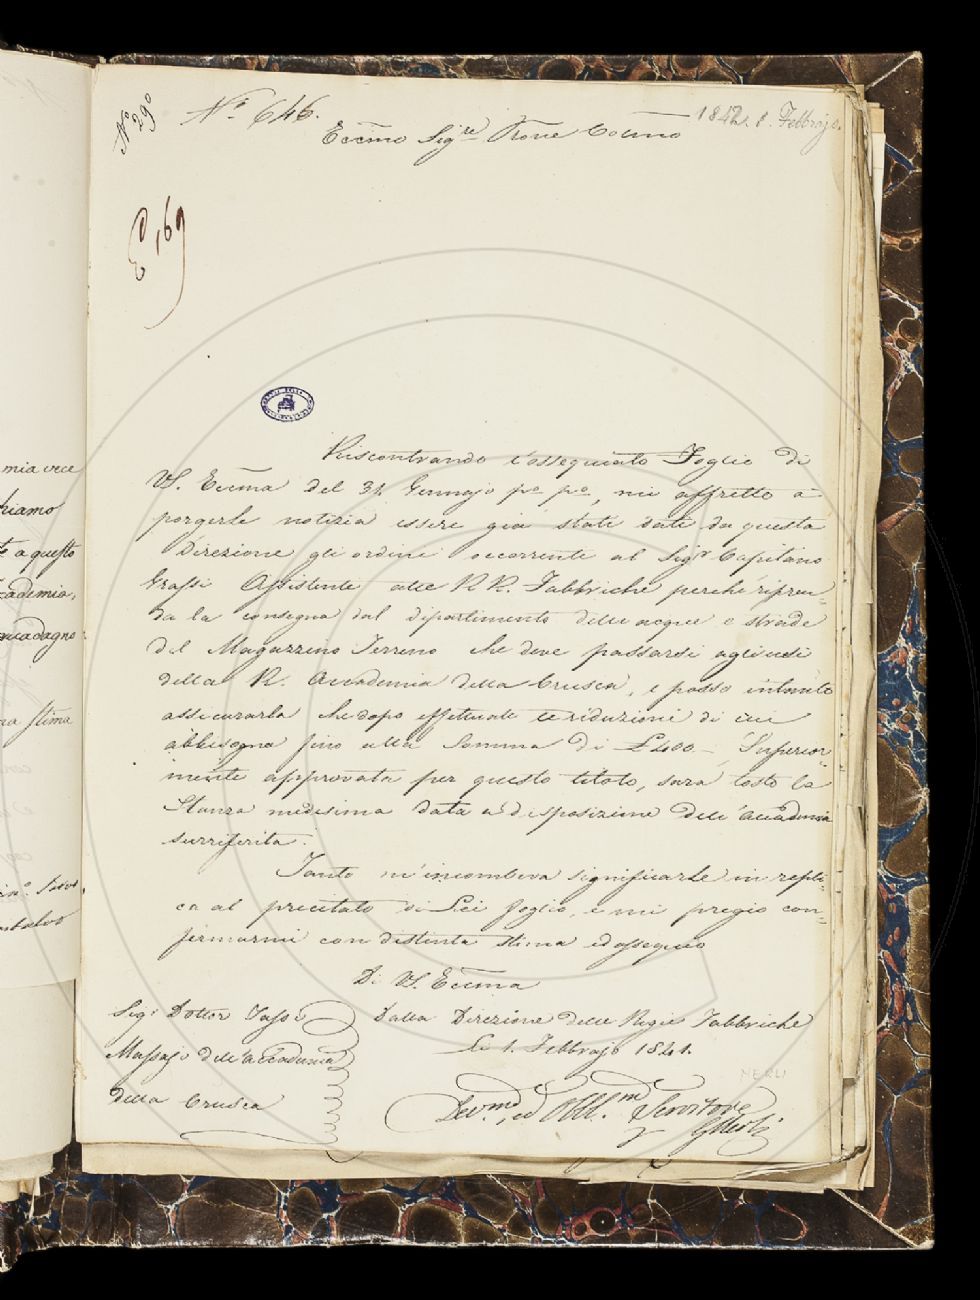 N.º 290
N.º 646.
1842. 1. Febbrajo.
Eccmo Sigre Prone Colmo
E 169
Riscontrando l'ossequiato Foglio di
VS. Eccma del 31. Gennajo po po, mi affretto a
porgerle notizia essere già stati dati da questa
Direzione gli ordini occorrenti al Sigr Capitano
Grassi Assistente alle RR. Fabbriche perchè ripren=
da la consegna dal dipartimento delle acque e strade
del Magazzino Terreno che deve passarsi agli usi
della R. Accademia della Crusca, e posso intanto
assicurarla che dopo effettuate le riduzioni di cui
abbisogna fino alla Somma di £400 - Superior=
mente approvata per questo titolo, sarà tosto la
Stanza medesima data a disposizione dell'accademia
surriferita.
Tanto m'incombeva significarle in repli=
ca al precitato di Lei foglio, e mi pregio con=
fermarmi con distinta stima ed ossequio
Di VS. Eccma
Sigr Dottor
Massajo dell'accademia
della Crusca
Dalla Direzione delle Regie Fabbriche
Li 1. Febbrajo 1841.
NERLI
Devmo, ed Obblmo Servitore
mia vece
a questo
cademia,
stima